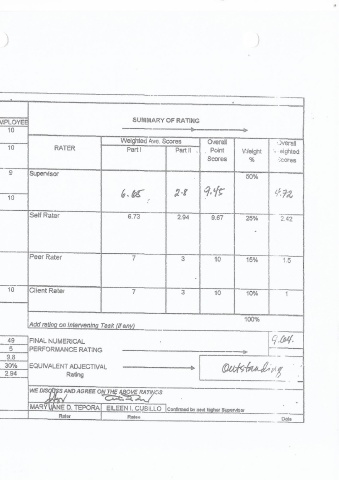 MPLOYEE
10
10
9
10
10
49
5
9.8
30%
2.94
SUMMARY OF RATING
RATER
Weighted Ave. Scores
Part I
Part II
Overall Point Scores
Weight %
Overall Weighted Scores
Supervisor 6.65 2.8 9.45 50% 4.72
Self Rater 6.73 2.94 9.67 25% 2.42
Peer Rater 7 3 10 15% 1.5
Client Rater 7 3 10 10% 1
100%
Add rating on Intervening Task (if any)
FINAL NUMERICAL
PERFORMANCE RATING 9.64
EQUIVALENT ADJECTIVAL Outstanding
Rating
WE DISCUSS AND AGREE ON THE ABOVE RATINGS
MARY JANE D. TEPORA EILEEN I. CUBILLO Confirmed by next higher Supervisor
Rater Ratee Date